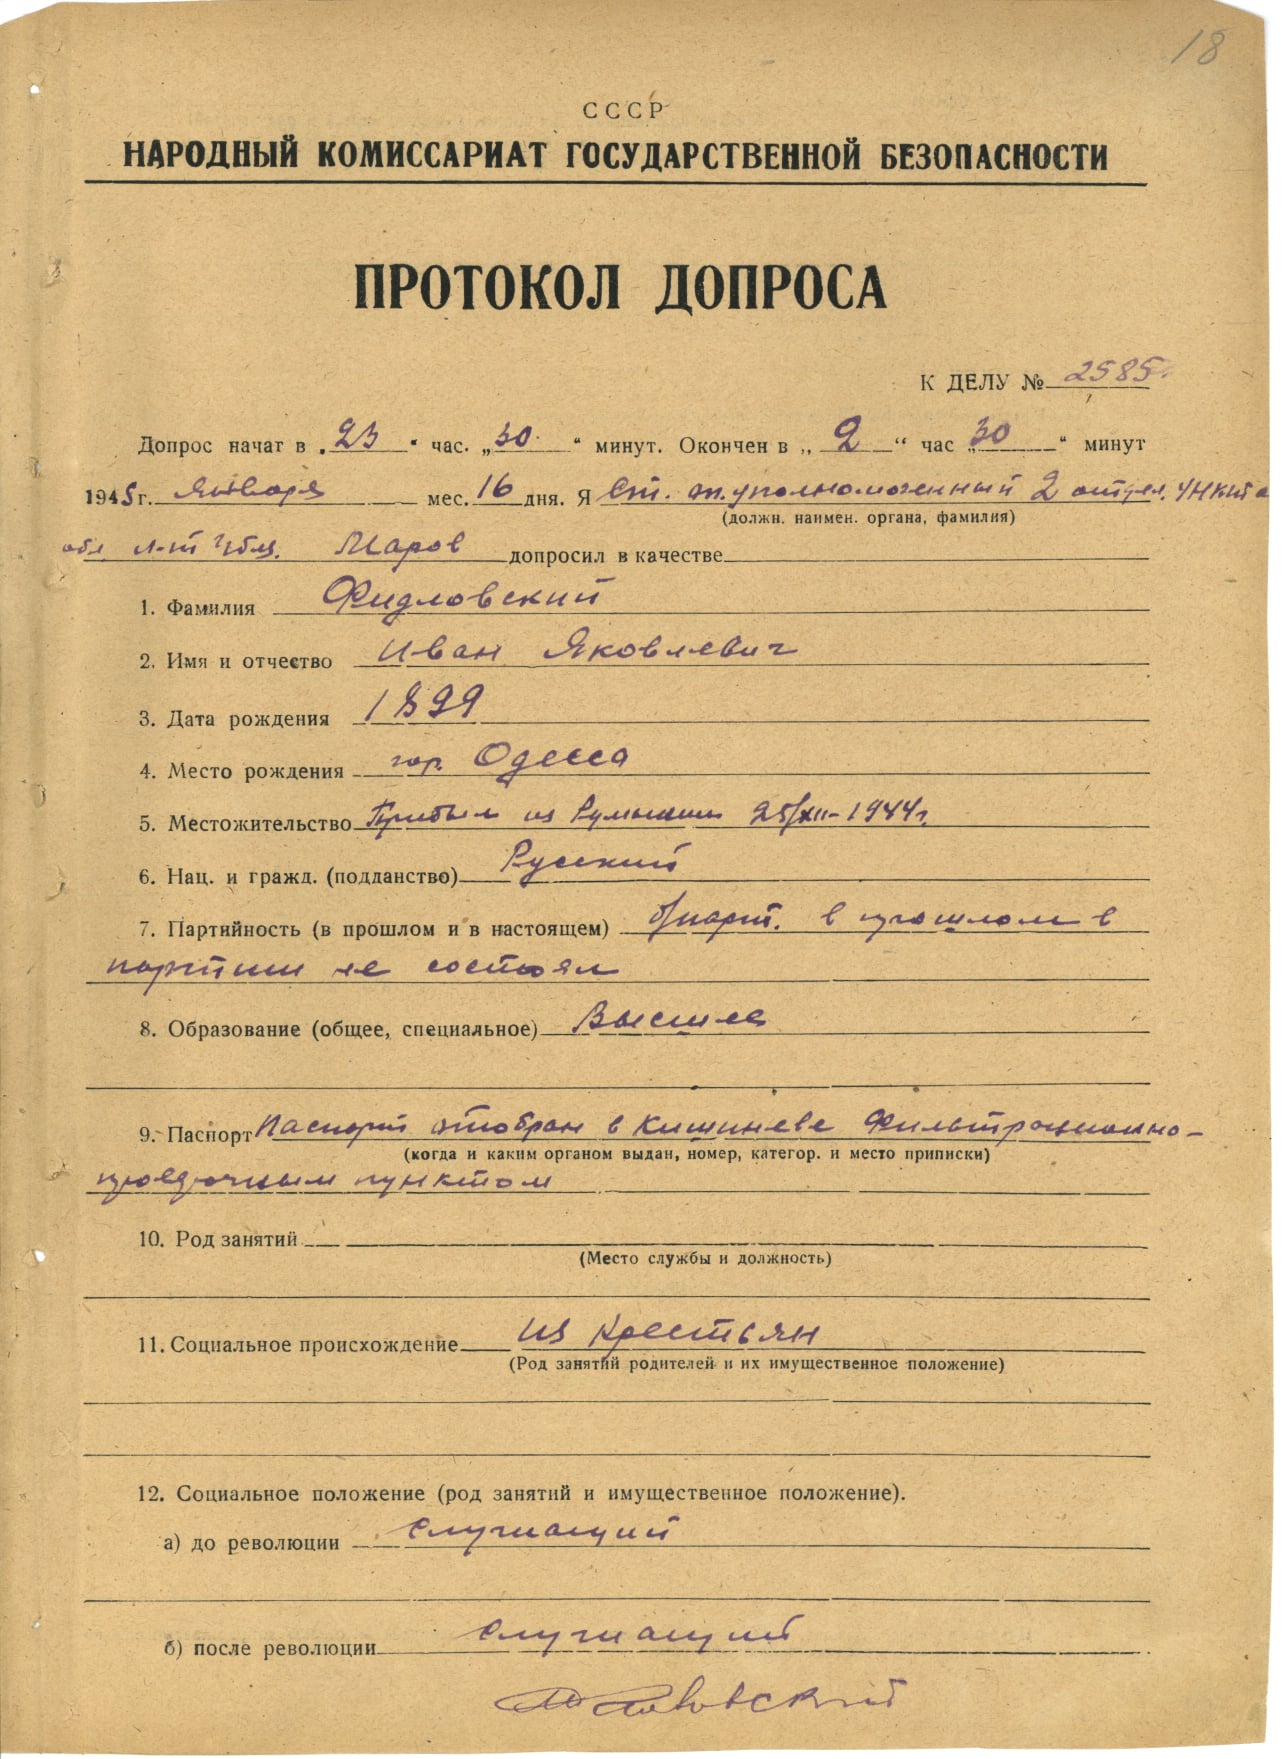 18
СССР
НАРОДНЫЙ КОМИССАРИАТ ГОСУДАРСТВЕННОЙ БЕЗОПАСНОСТИ
ПРОТОКОЛ ДОПРОСА
К ДЕЛУ № 2585
Допрос начат в „23“ час. „30“ минут. Окончен в „2“ час „30“ минут
1945 г. января мес. 16 дня. Я Ст. уполномоченный 2 отдел.
(должн. наимен. органа, фамилия)
обл л-т Маров допросил в качестве
1. Фамилия Фидловский
2. Имя и отчество Иван Яковлевич
3. Дата рождения 1899
4. Место рождения гор. Одесса
5. Местожительство Прибыл из Румынии 25/XII-1944г.
6. Нац. и гражд. (подданство) Русский
7. Партийность (в прошлом и в настоящем) б/парт. в прошлом в
партии не состоял
8. Образование (общее, специальное) Высшее
9. Паспорт Паспорт отобран в Кишиневе Фильтрационно-
(когда и каким органом выдан, номер, категор. и место приписки)
проверочным пунктом
10. Род занятий
(Место службы и должность)
11. Социальное происхождение из крестьян
(Род занятий родителей и их имущественное положение)
12. Социальное положение (род занятий и имущественное положение).
а) до революции служащий
б) после революции служащий